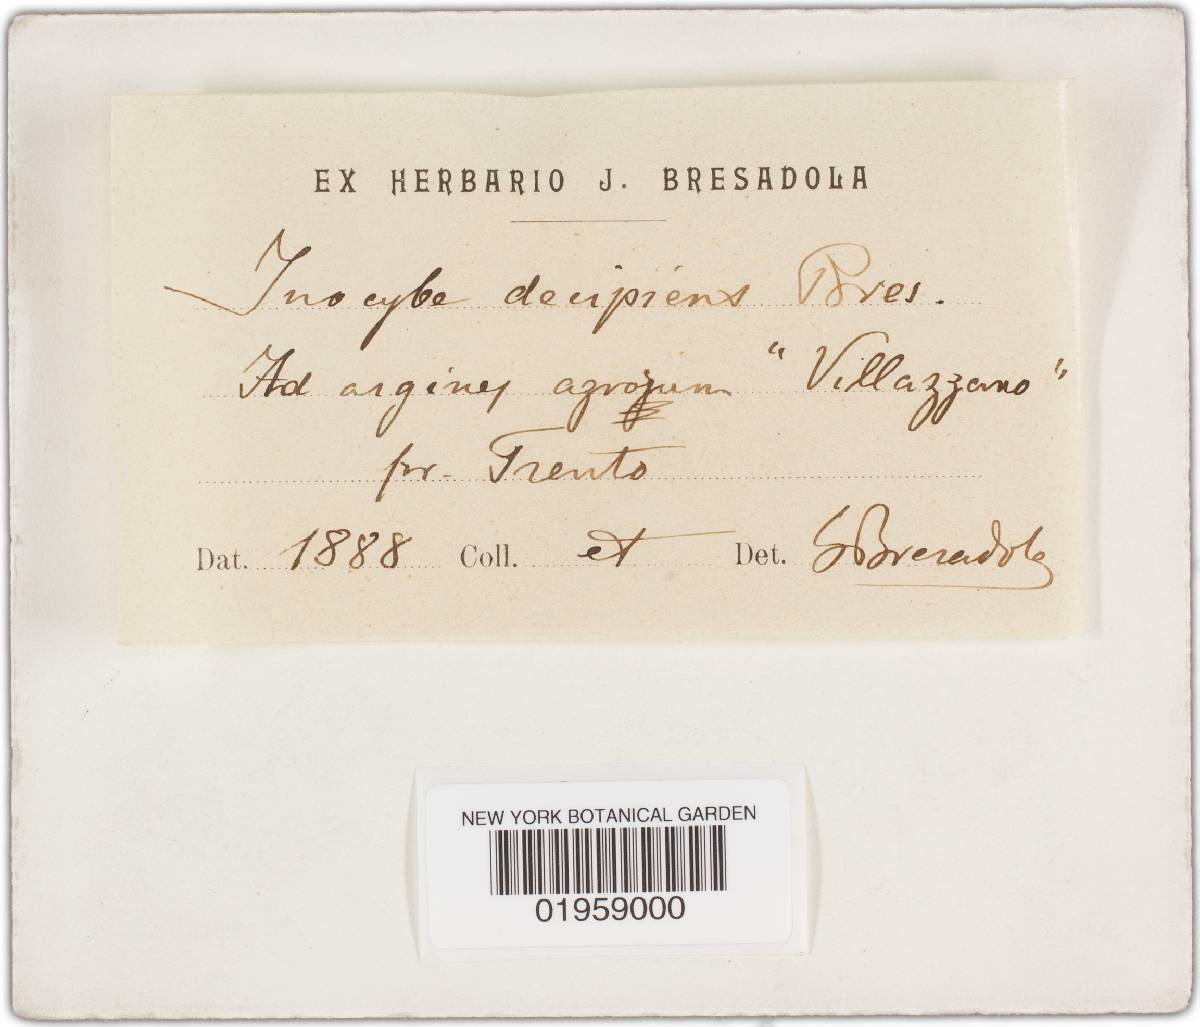 EX HERBARIO J. BRESADOLA
Inocybe decipiens Bres.
Ad argines agrorum "Villazzano"
pr. Trento
Dat. 1888 Coll. et Det. G Bresadola
NEW YORK BOTANICAL GARDEN
01959000